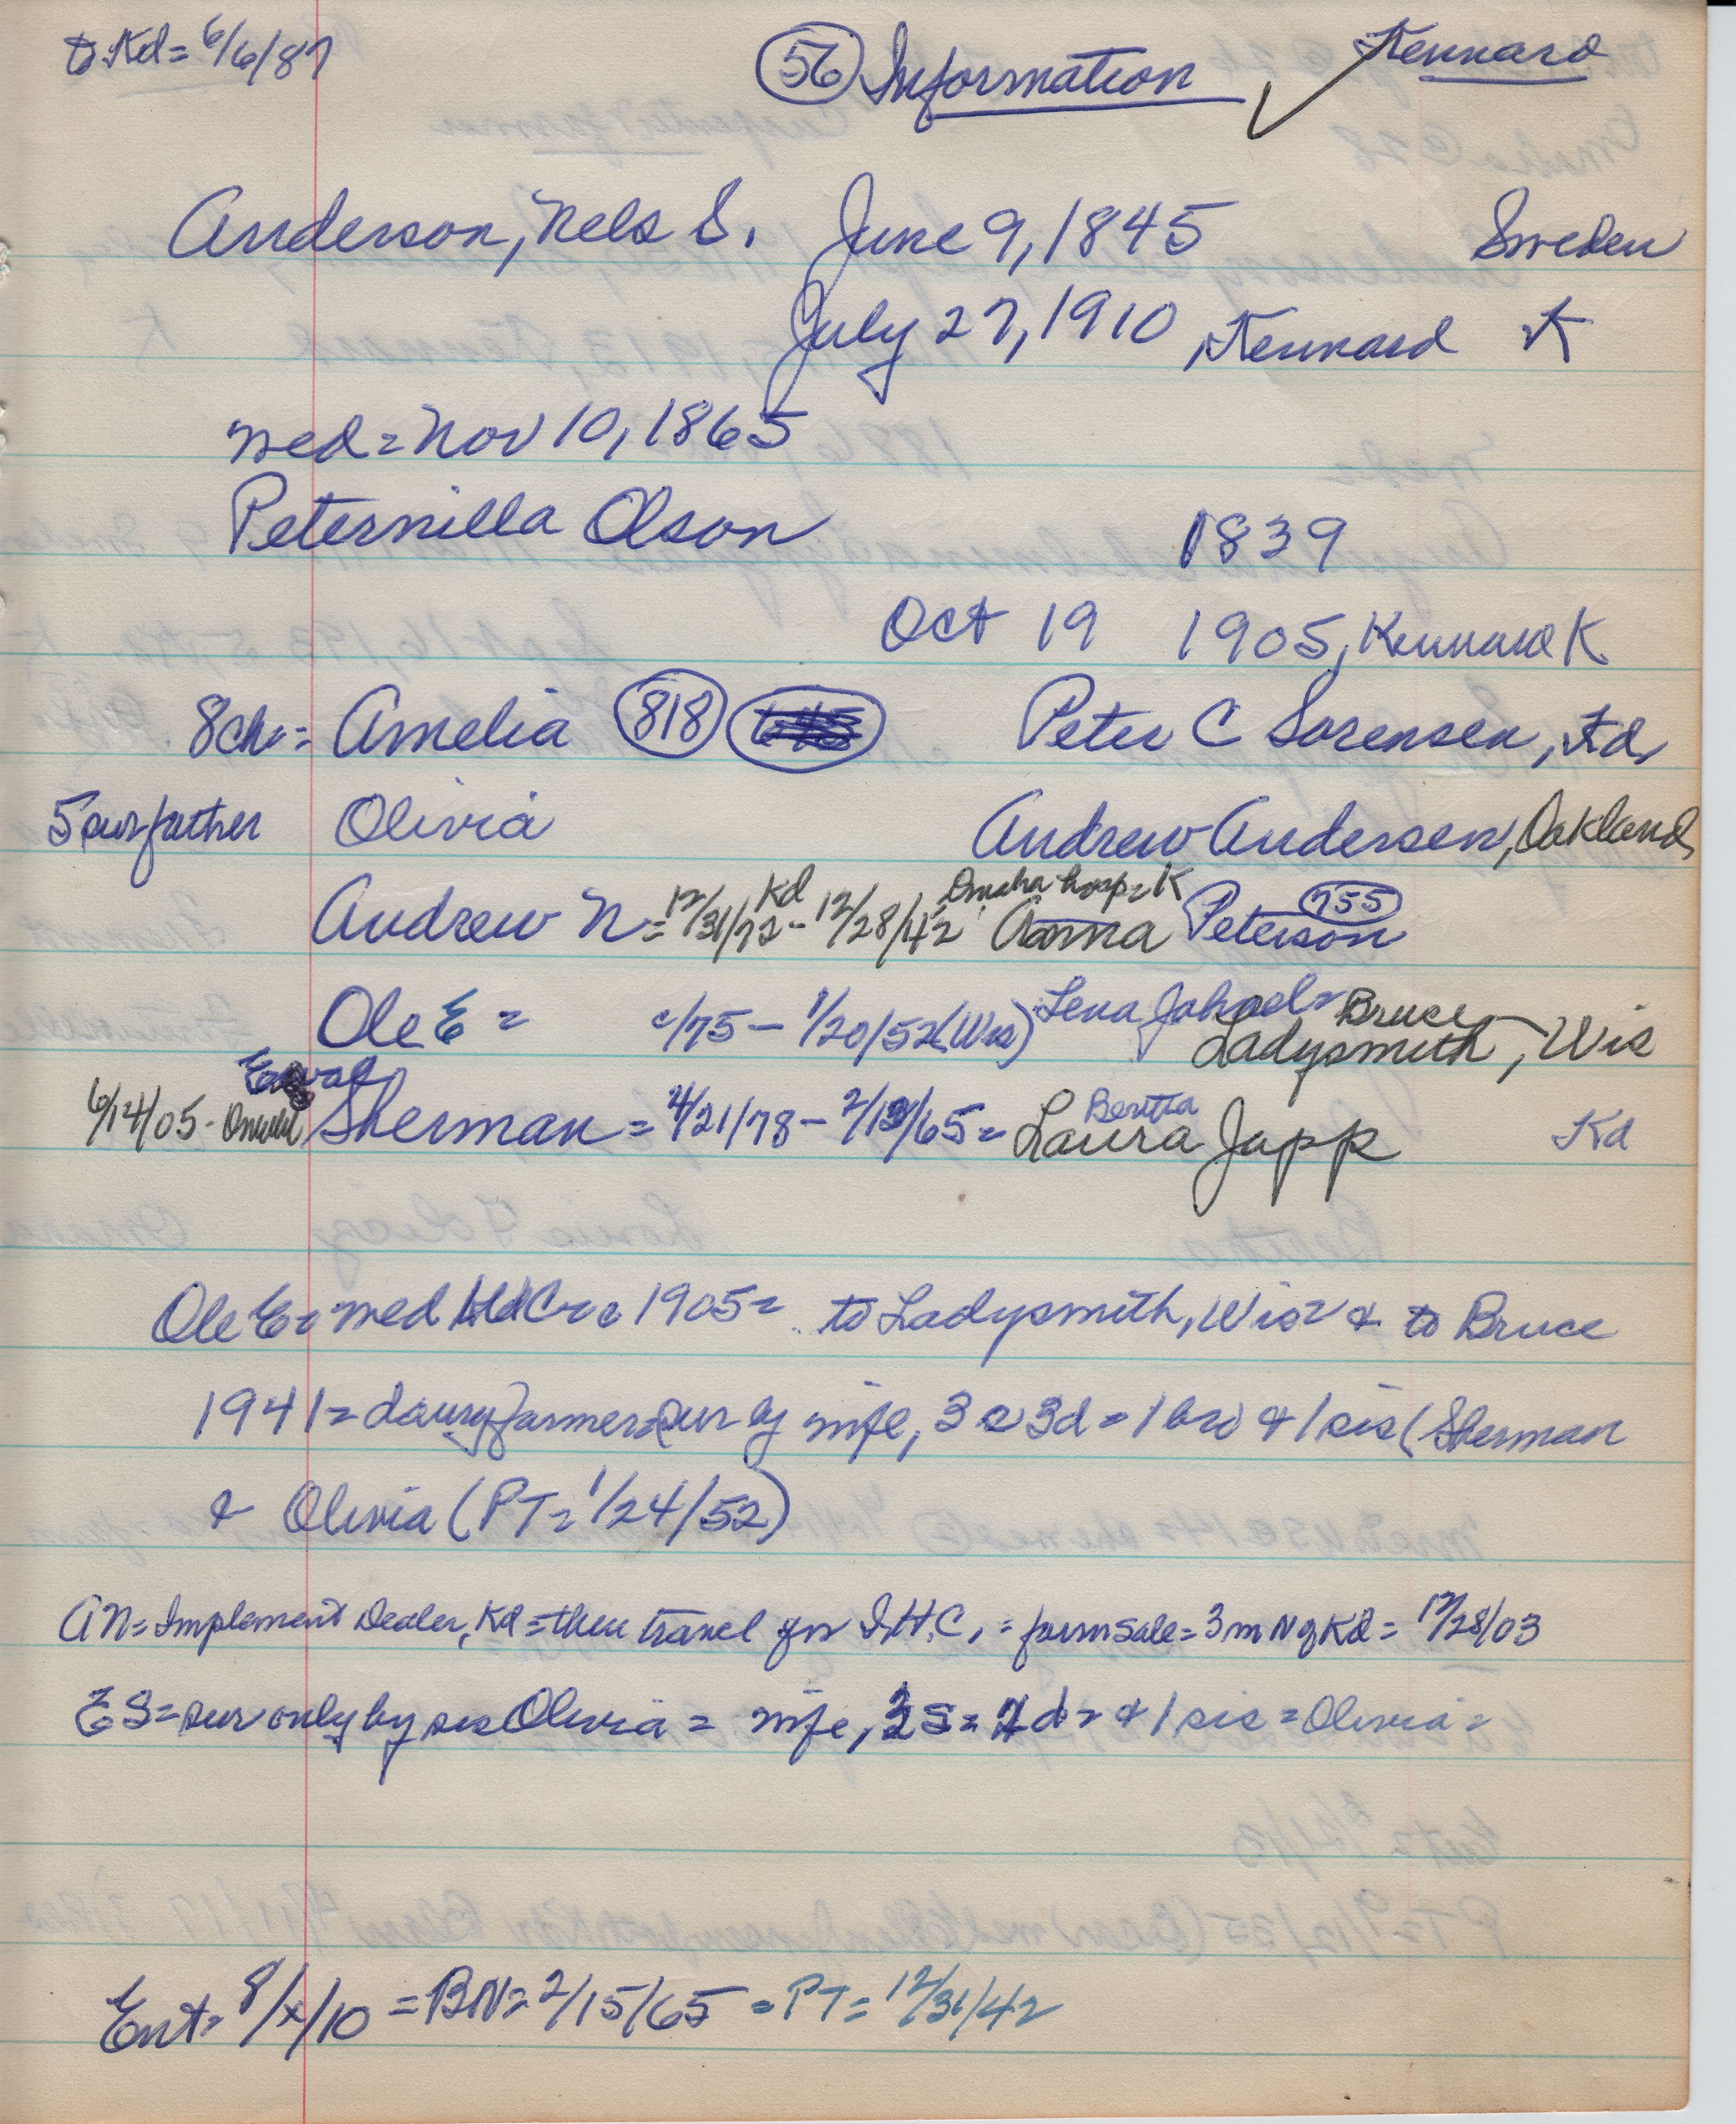 to Kd = 6/6/87
56 Information ✓ Kennard
Anderson, Nels S. June 9, 1845 Sweden
July 27, 1910, Kennard K
med = Nov 10, 1865
Peternilla Olson 1839
Oct 19 1905, Kennard K
8 ch = Amelia 818 Peter C Sorensen, Kd,
5 sur father Olivia Andrew Andersen, Oakland
Andrew N = 12/31/72 Kd - 12/28/42 Omaha hosp = K Anna Peterson 755
Ole E = c/75 - 1/20/52 (Wis) Lena = Bruce
Ladysmith, Wis
6/14/05 - Sherman = 4/21/78 - 2/13/65 = Laura Bertha Japp Kd
Ole E = med 1905 = to Ladysmith, Wis = & to Bruce
1941 = dairy farmer = sur by wife, 3 s 3d = 1 bro & 1 sis (Sherman
& Olivia (PT = 1/24/52)
AN = Implement Dealer, Kd = then travel for I.H.C, = farm sale = 3 m N of Kd = 12/28/03
ES = sur only by sis Olivia = wife, s = d = & 1 sis = Olivia =
Ent = 8/x/10 = BN = 2/15/65 = PT = 12/31/42